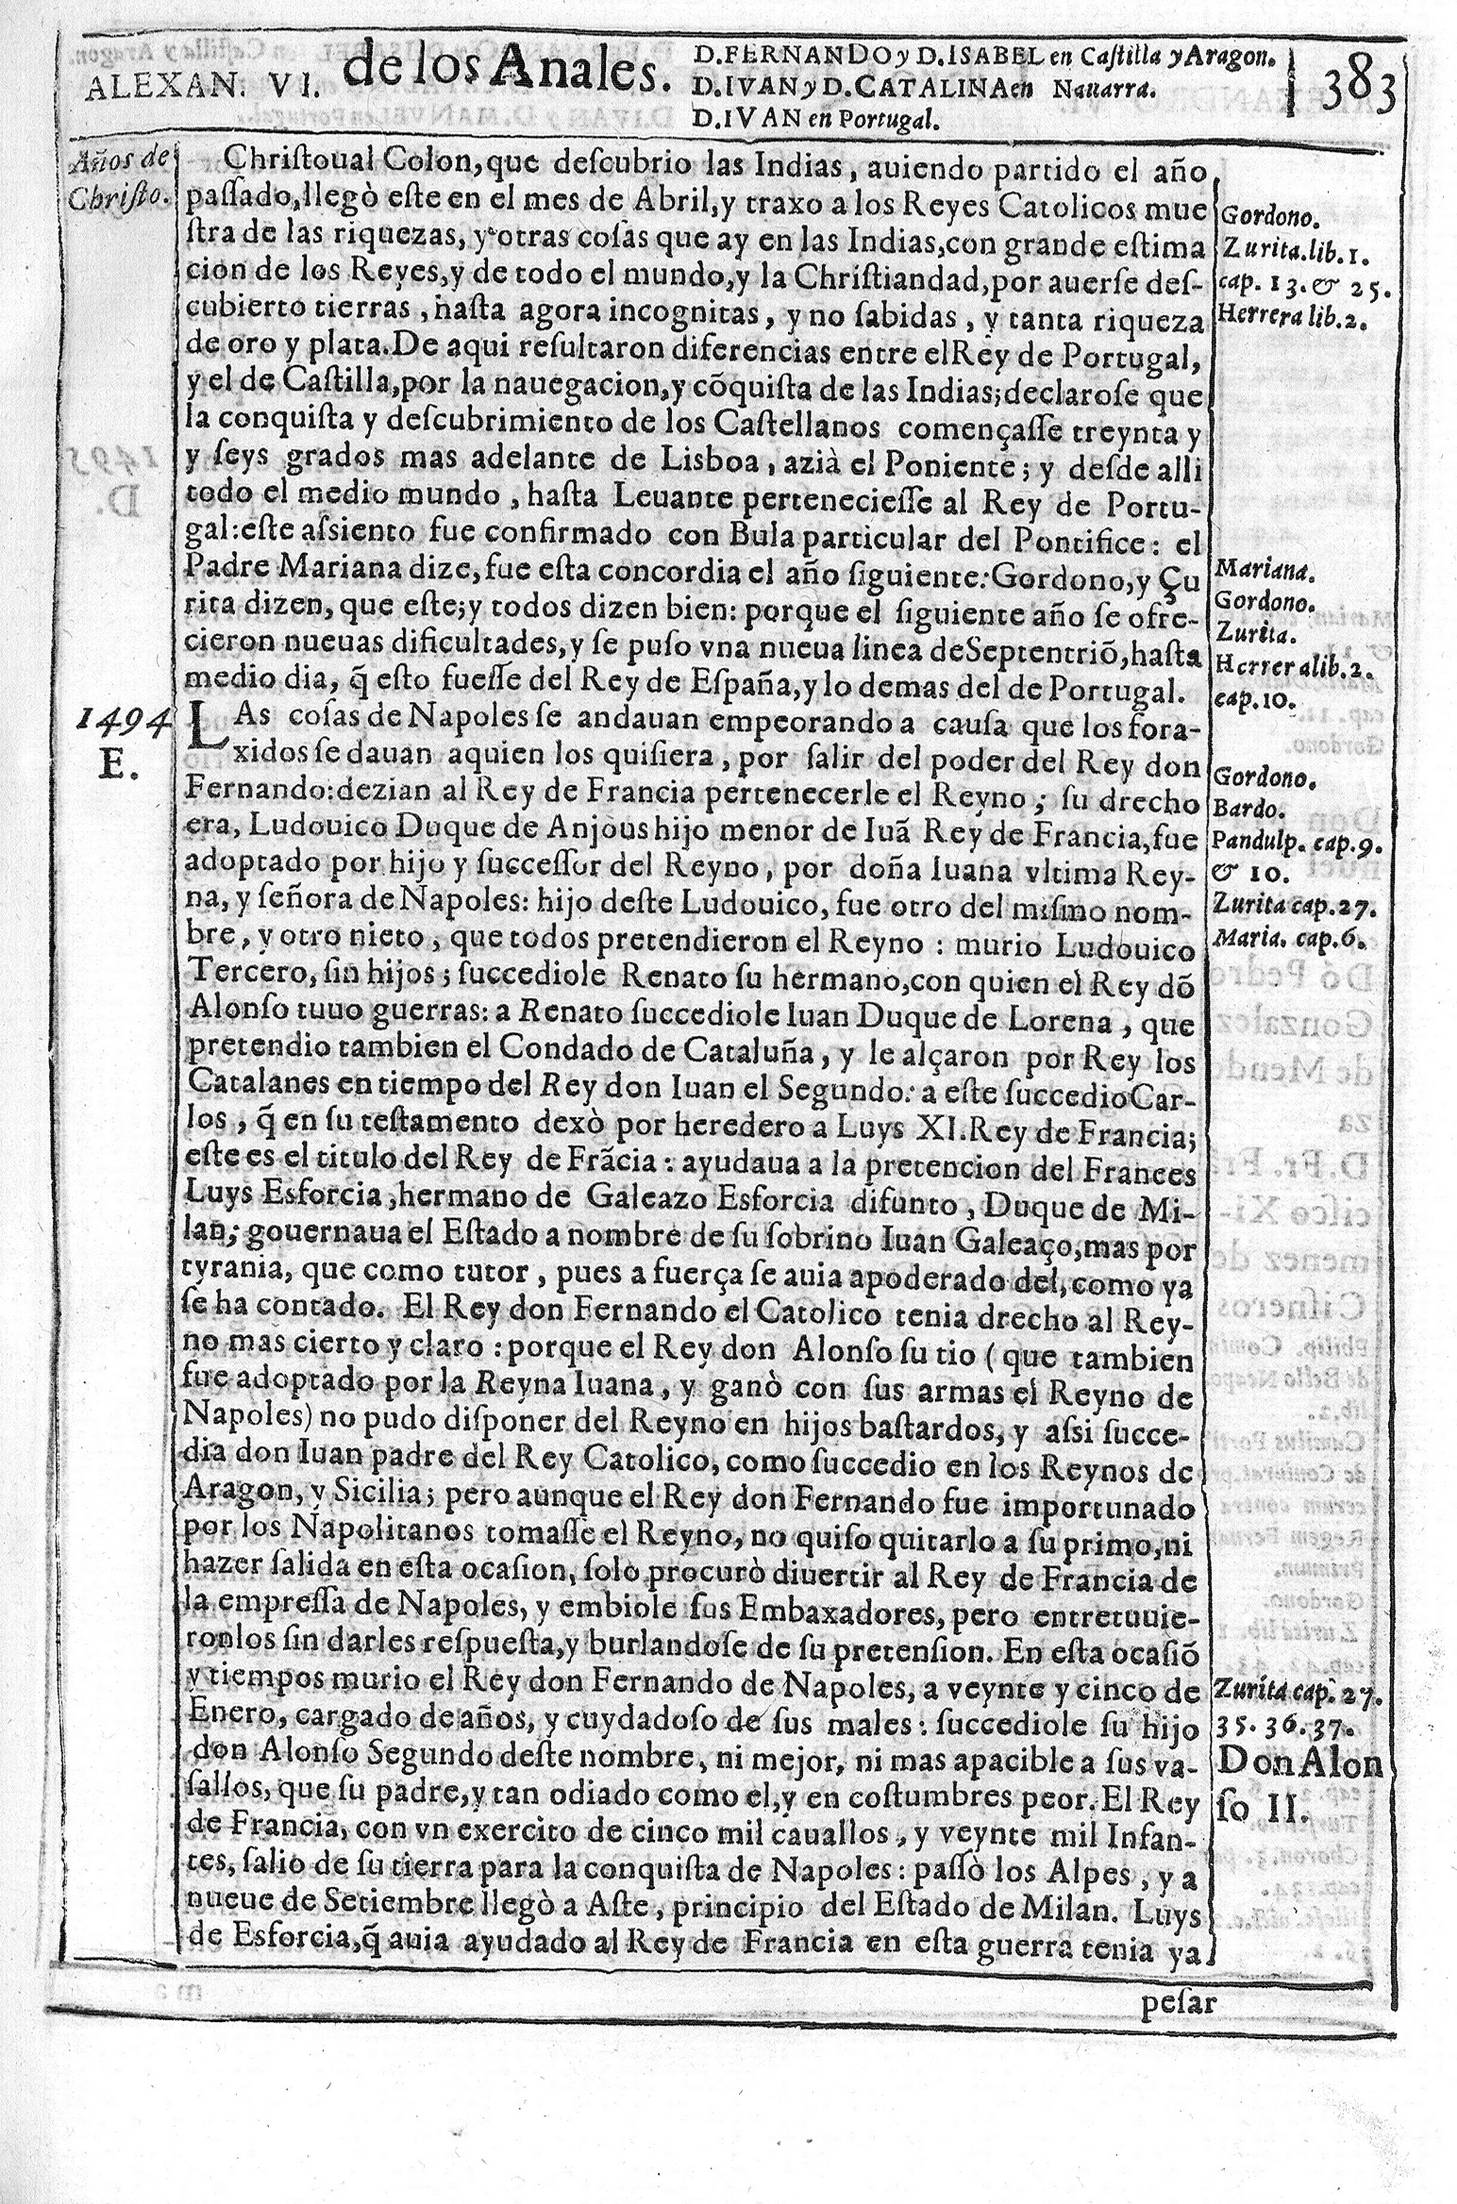 ALEXAN. VI. de los Anales.
D. FERNANDO y D. ISABEL en Caſtilla y Aragon.
D. IVAN y D. CATALINA en Nauarra.
D. IVAN en Portugal.
383
Años de
Chriſto.
Chriſtoual Colon, que deſcubrio las Indias, auiendo partido el año
paſſado, llegò eſte en el mes de Abril, y traxo a los Reyes Catolicos mue
ſtra de las riquezas, y otras coſas que ay en las Indias, con grande eſtima
cion de los Reyes, y de todo el mundo, y la Chriſtiandad, por auerſe deſ-
cubierto tierras, haſta agora incognitas, y no ſabidas, y tanta riqueza
de oro y plata. De aqui reſultaron diferencias entre el Rey de Portugal,
y el de Caſtilla, por la nauegacion, y cõquiſta de las Indias; declaroſe que
la conquiſta y deſcubrimiento de los Caſtellanos començaſſe treynta y
y ſeys grados mas adelante de Lisboa, azià el Poniente; y deſde alli
todo el medio mundo, haſta Leuante pertenecieſſe al Rey de Portu-
gal: eſte aſsiento fue confirmado con Bula particular del Pontifice: el
Padre Mariana dize, fue eſta concordia el año ſiguiente: Gordono, y Çu
rita dizen, que eſte; y todos dizen bien: porque el ſiguiente año ſe ofre-
cieron nueuas dificultades, y ſe puſo vna nueua linea de Septentriõ, haſta
medio dia, q̃ eſto fueſſe del Rey de Eſpaña, y lo demas del de Portugal.
Gordono.
Zurita. lib. 1.
cap. 13. & 25.
Herrera lib. 2.
Mariana.
Gordono.
Zurita.
Herrera lib. 2.
cap. 10.
1494
E.
LAs coſas de Napoles ſe andauan empeorando a cauſa que los fora-
xidos ſe dauan a quien los quiſiera, por ſalir del poder del Rey don
Fernando: dezian al Rey de Francia pertenecerle el Reyno; ſu drecho
era, Ludouico Duque de Anjous hijo menor de Iuã Rey de Francia, fue
adoptado por hijo y ſucceſſor del Reyno, por doña Iuana vltima Rey-
na, y ſeñora de Napoles: hijo deſte Ludouico, fue otro del miſmo nom-
bre, y otro nieto, que todos pretendieron el Reyno: murio Ludouico
Tercero, ſin hijos; ſuccediole Renato ſu hermano, con quien el Rey dõ
Alonſo tuuo guerras: a Renato ſuccediole Iuan Duque de Lorena, que
pretendio tambien el Condado de Cataluña, y le alçaron por Rey los
Catalanes en tiempo del Rey don Iuan el Segundo: a eſte ſuccedio Car-
los, q̃ en ſu teſtamento dexò por heredero a Luys XI. Rey de Francia;
eſte es el titulo del Rey de Frãcia: ayudaua a la pretencion del Frances
Luys Esforcia, hermano de Galeazo Esforcia difunto, Duque de Mi-
lan; gouernaua el Eſtado a nombre de ſu ſobrino Iuan Galeaço, mas por
tyrania, que como tutor, pues a fuerça ſe auia apoderado del, como ya
ſe ha contado. El Rey don Fernando el Catolico tenia drecho al Rey-
no mas cierto y claro: porque el Rey don Alonſo ſu tio (que tambien
fue adoptado por la Reyna Iuana, y ganò con ſus armas el Reyno de
Napoles) no pudo diſponer del Reyno en hijos baſtardos, y aſsi ſucce-
dia don Iuan padre del Rey Catolico, como ſuccedio en los Reynos de
Aragon, y Sicilia; pero aunque el Rey don Fernando fue importunado
por los Napolitanos tomaſſe el Reyno, no quiſo quitarlo a ſu primo, ni
hazer ſalida en eſta ocaſion, ſolo procurò diuertir al Rey de Francia de
la empreſſa de Napoles, y embiole ſus Embaxadores, pero entretuuie-
ronlos ſin darles reſpueſta, y burlandoſe de ſu pretenſion. En eſta ocaſiõ
y tiempos murio el Rey don Fernando de Napoles, a veynte y cinco de
Enero, cargado de años, y cuydadoſo de ſus males: ſuccediole ſu hijo
don Alonſo Segundo deſte nombre, ni mejor, ni mas apacible a ſus va-
ſallos, que ſu padre, y tan odiado como el, y en coſtumbres peor. El Rey
de Francia, con vn exercito de cinco mil cauallos, y veynte mil Infan-
tes, ſalio de ſu tierra para la conquiſta de Napoles: paſſò los Alpes, y a
nueue de Setiembre llegò a Aſte, principio del Eſtado de Milan. Luys
de Esforcia, q̃ auia ayudado al Rey de Francia en eſta guerra tenia ya
Gordono.
Bardo.
Pandulp. cap. 9.
& 10.
Zurita cap. 27.
Maria. cap. 6.
Zurita cap. 27.
35. 36. 37.
Don Alon
ſo II.
peſar